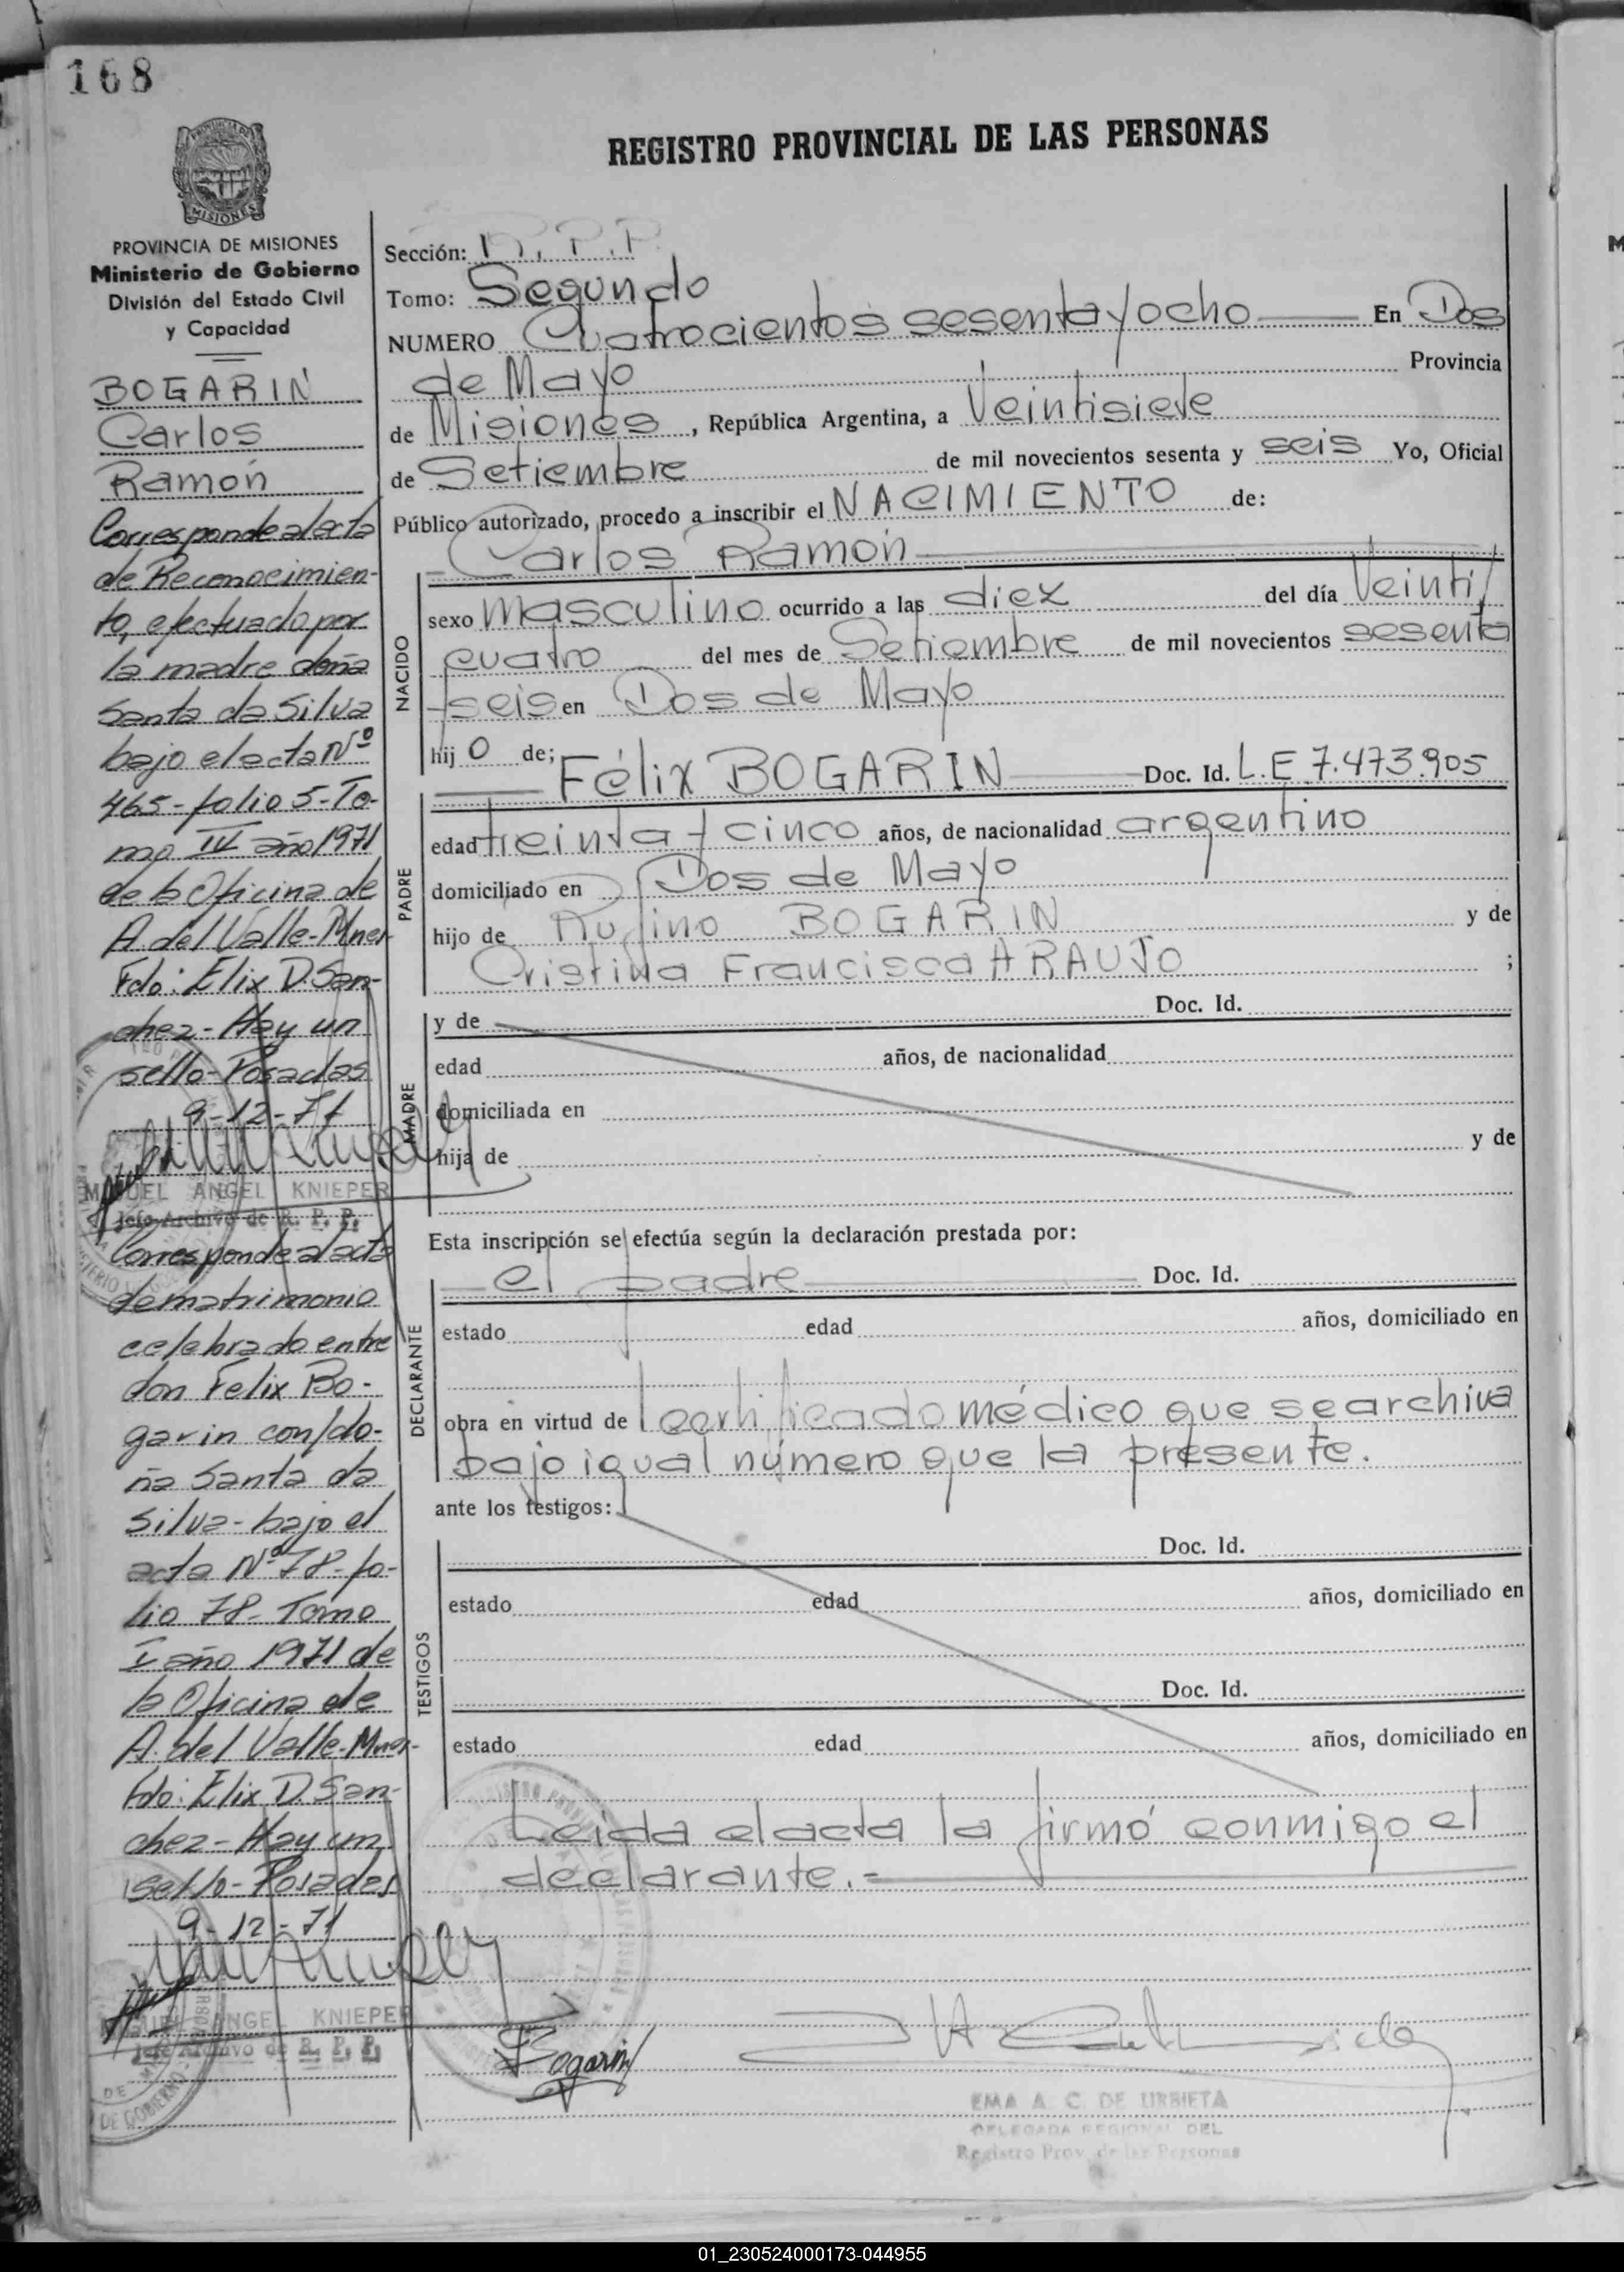 168
REGISTRO PROVINCIAL DE LAS PERSONAS
MISIONES
PROVINCIA DE MISIONES
Ministerio de Gobierno
División del Estado Civil
y Capacidad
BOGARIN
Carlos
Ramón
Corresponde al acta
de Reconocimien-
to, efectuado por
la madre doña
Santa da Silva
bajo el acta Nº
465-folio 5-To-
mo IV año 1971
de la Oficina de
A. del Valle-Mnes-
Fdo: Elix D. San-
chez-Hay un
sello-Posadas
9-12-71
MIGUEL ANGEL KNIEPER
Jefe Archivo de R. P. P.
Corresponde al acta
de matrimonio
celebrado entre
don Felix Bo-
garin con/do-
ña Santa da
Silva-bajo el
acta Nº 78-fo-
lio 78-Tomo
I año 1971 de
la Oficina de
A. del Valle-Mnes-
Fdo: Elix D. San-
chez-Hay un
sello-Posadas
9-12-71
MIGUEL ANGEL KNIEPER
Jefe Archivo de R. P. P.
DE GOBIERNO
Sección: R.P.P.
Tomo: Segundo
NUMERO Cuatrocientos sesenta y ocho En Dos
de Mayo Provincia
de Misiones, República Argentina, a Veintisiete
de Setiembre de mil novecientos sesenta y seis Yo, Oficial
Público autorizado, procedo a inscribir el NACIMIENTO de:
Carlos Ramón
NACIDO
sexo masculino ocurrido a las diez del día Veinti
cuatro del mes de Setiembre de mil novecientos sesenta
y seis en Dos de Mayo
hijo de; Félix BOGARIN Doc. Id. L.E 7.473.905
PADRE
edad treinta y cinco años, de nacionalidad argentino
domiciliado en Dos de Mayo
hijo de Rufino BOGARIN y de
Cristina Francisca ARAUJO ;
MADRE
y de Doc. Id.
edad años, de nacionalidad
domiciliada en
hija de y de
Esta inscripción se efectúa según la declaración prestada por:
DECLARANTE
el padre Doc. Id.
estado edad años, domiciliado en
obra en virtud de certificado médico que se archiva
bajo igual número que la presente.
ante los testigos:
TESTIGOS
Doc. Id.
estado edad años, domiciliado en
Doc. Id.
estado edad años, domiciliado en
Leída el acta la firmó conmigo el
declarante.=
Bogarin
EMA A. C. DE URBIETA
DELEGADA REGIONAL DEL
Registro Prov. de las Personas
01_230524000173-044955